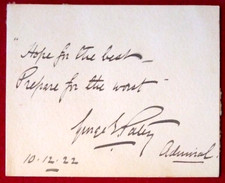 Hope for the best –
Prepare for the worst
George
Admiral
10.12.22